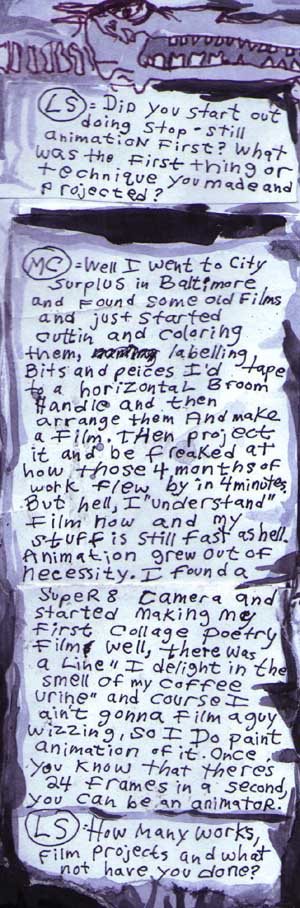 LS = Did you start out
doing stop-still
animation first? What
was the first thing or
technique you made and
projected?
MC = Well I went to City
Surplus in Baltimore
and found some old films
and just started
cuttin and coloring
them, labelling
Bits and peices I'd tape
to a horizontal Broom
Handle and then
arrange them And make
a film. THen project
it and be freaked at
how those 4 months of
work flew by in 4 minutes.
But hell, I "understand"
film now and my
stuff is still fast as hell.
Animation grew out of
necessity. I found a
Super 8 Camera and
started making my
first collage poetry
film, well, there was
a line "I delight in the
smell of my coffee
urine" and course I
ain't gonna film a guy
wizzing, so I Do paint
animation of it. Once
you know that theres
24 frames in a second,
you can be an animator.
LS - How many works,
film projects and what
not have you done?